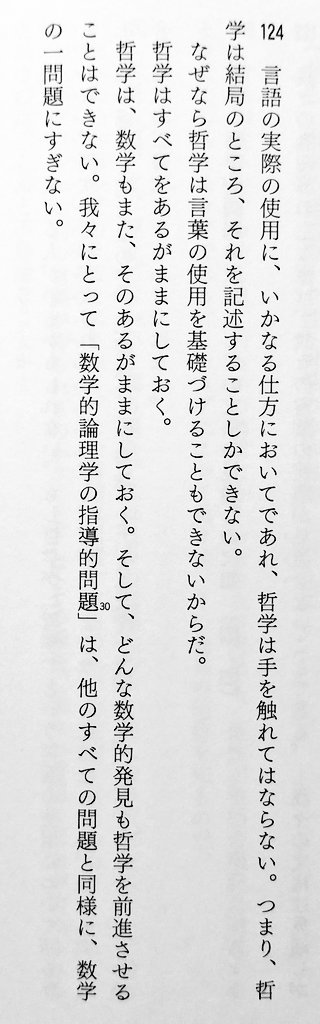 124　言語の実際の使用に、いかなる仕方においてであれ、哲学は手を触れてはならない。つまり、哲
学は結局のところ、それを記述することしかできない。
なぜなら哲学は言葉の使用を基礎づけることもできないからだ。
哲学はすべてをあるがままにしておく。
哲学は、数学もまた、そのあるがままにしておく。そして、どんな数学的発見も哲学を前進させる
ことはできない。我々にとって「数学的論理学の指導的問題30」は、他のすべての問題と同様に、数学
の一問題にすぎない。